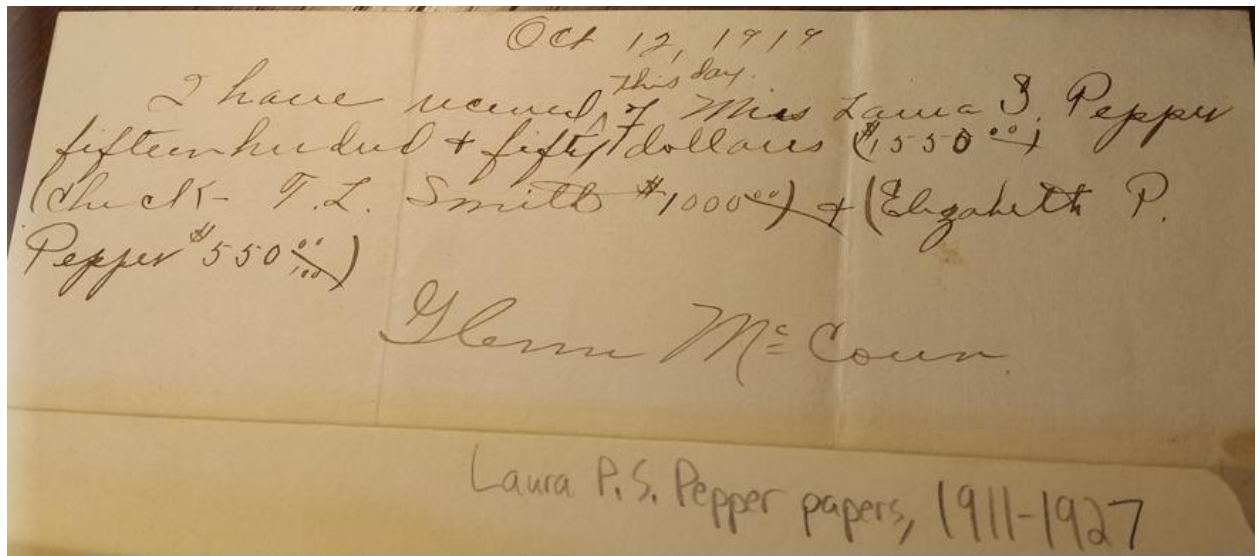 Oct 12, 1919
this day.
I have received ^ of Miss Laura S. Pepper
fifteen hundred + fifty dollars ($1,550 00)
(Check - T. L. Smith $1000 00) + (Elizabeth P.
Pepper $550 00/100)
Glenn McCoun
Laura P. S. Pepper papers, 1911-1927